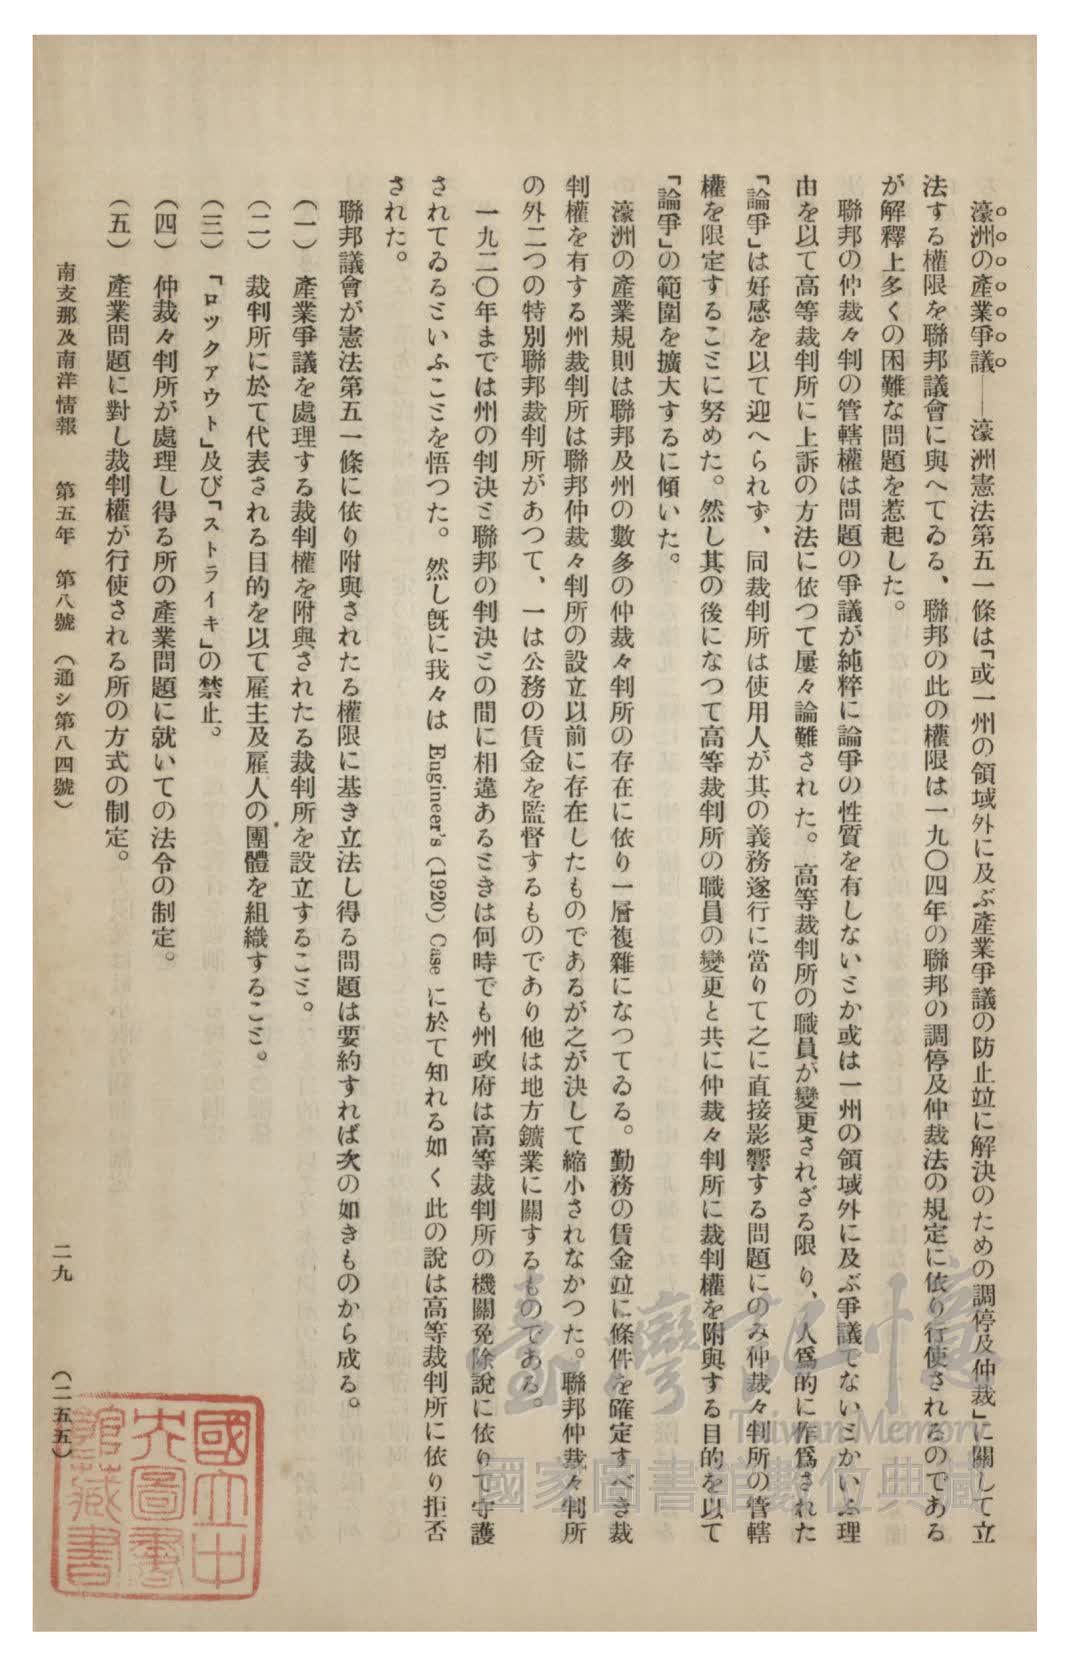 濠洲の產業爭議――濠洲憲法第五一條は「或一州の領域外に及ぶ產業爭議の防止竝に解決のための調停及仲裁」に關して立
法する權限を聯邦議會に與へてゐる、聯邦の此の權限は一九〇四年の聯邦の調停及仲裁法の規定に依り行使されるのである
が解釋上多くの困難な問題を惹起した。
聯邦の仲裁々判の管轄權は問題の爭議が純粹に論爭の性質を有しないヾか或は一州の領域外に及ぶ爭議でないヾかいふ理
由を以て高等裁判所に上訴の方法に依つて屢々論難された。高等裁判所の職員が變更されざる限り、人爲的に作爲された
「論爭」は好感を以て迎へられず、同裁判所は使用人が其の義務遂行に當りて之に直接影響する問題にのみ仲裁々判所の管轄
權を限定するこヾに努めた。然し其の後になつて高等裁判所の職員の變更と共に仲裁々判所に裁判權を附與する目的を以て
「論爭」の範圍を擴大するに傾いた。
濠洲の產業規則は聯邦及州の數多の仲裁々判所の存在に依り一層複雜になつてゐる。勤務の賃金竝に條件を確定すべき裁
判權を有する州裁判所は聯邦仲裁々判所の設立以前に存在したものであるが之が決して縮小されなかつた。聯邦仲裁々判所
の外二つの特別聯邦裁判所があつて、一は公務の賃金を監督するものであり他は地方鑛業に關するものである。
一九二〇年までは州の判決ヾ聯邦の判決ヾの間に相違あるヾきは何時でも州政府は高等裁判所の機關免除說に依りて守護
されてゐるヾいふこヾを悟つた。然し旣に我々は Engineer's (1920) Case に於て知れる如く此の說は高等裁判所に依り拒否
された。
聯邦議會が憲法第五一條に依り附與されたる權限に基き立法し得る問題は要約すれば次の如きものから成る。
(一) 產業爭議を處理する裁判權を附與されたる裁判所を設立するこヾ。
(二) 裁判所に於て代表される目的を以て雇主及雇人の團體を組織するこヾ。
(三) 「ロックアウト」及び「ストライキ」の禁止。
(四) 仲裁々判所が處理し得る所の產業問題に就いての法令の制定。
(五) 產業問題に對し裁判權が行使される所の方式の制定。
南支那及南洋情報 第五年 第八號 (通シ第八四號) 二九 (二五五)
國立中
央圖書
館藏書
臺灣記憶
Taiwan Memory
國家圖書館數位典藏